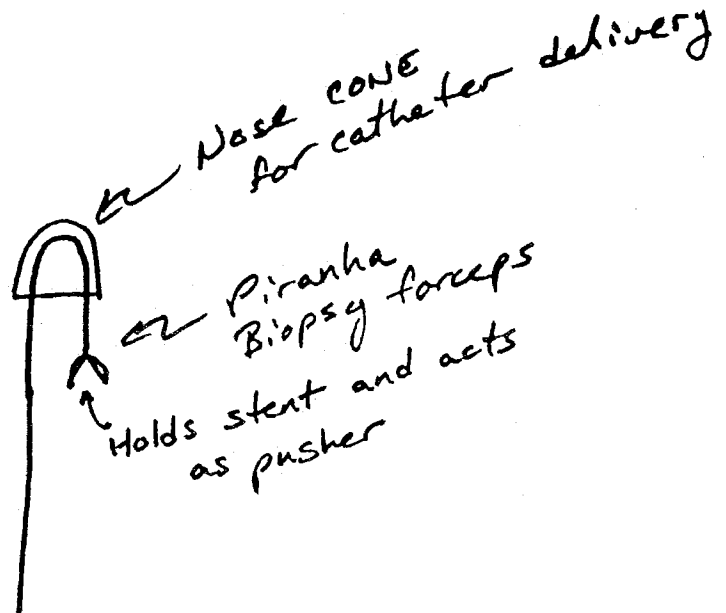 Nose CONE
for catheter delivery
Piranha
Biopsy forceps
Holds stent and acts
as pusher